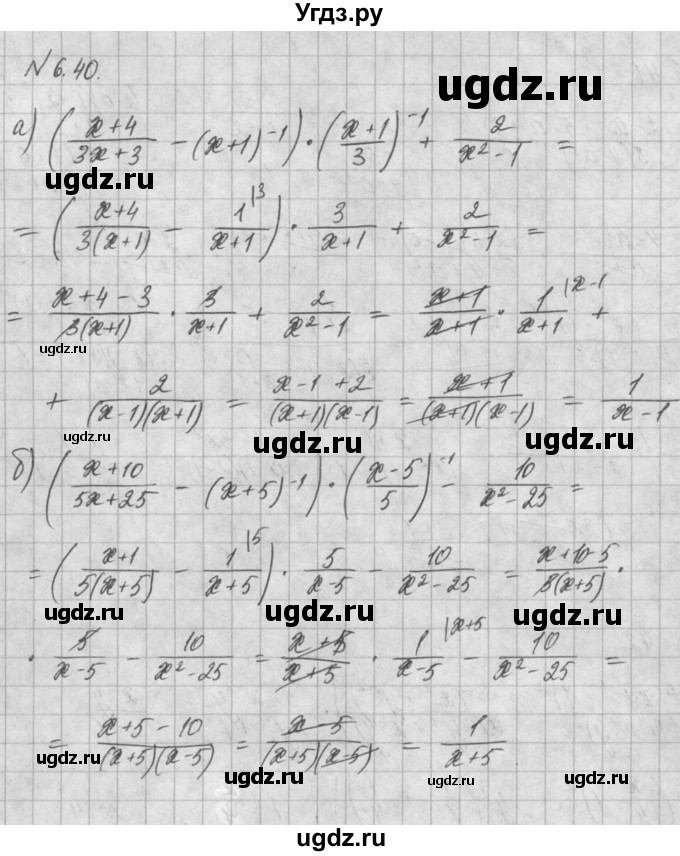 Угдз.ру
№ 6.40.
ugdz.ru
а) ((x+4)/(3x+3) - (x+1)^-1) · ((x+1)/3)^-1 + 2/(x²-1) =
ugdz.ru ugdz.ru
= ((x+4)/(3(x+1)) - 1/(x+1) |3) · 3/(x+1) + 2/(x²-1) =
ugdz.ru
= (x+4-3)/(3(x+1)) · 3/(x+1) + 2/(x²-1) = (x+1)/(x+1) · 1/(x+1) |x-1 +
ugdz.ru ugdz.ru
+ 2/((x-1)(x+1)) = (x-1+2)/((x+1)(x-1)) = (x+1)/((x+1)(x-1)) = 1/(x-1)
ugdz.ru ugdz.ru ugdz.ru
б) ((x+10)/(5x+25) - (x+5)^-1) · ((x-5)/5)^-1 - 10/(x²-25) =
ugdz.ru ugdz.ru
= ((x+1)/(5(x+5)) - 1/(x+5) |5) · 5/(x-5) - 10/(x²-25) = (x+10-5)/(5(x+5)) ·
ugdz.ru ugdz.ru ugdz.ru
· 5/(x-5) - 10/(x²-25) = (x+5)/(x+5) · 1/(x-5) |x+5 - 10/(x²-25) =
ugdz.ru ugdz.ru
= (x+5-10)/((x+5)(x-5)) = (x-5)/((x+5)(x-5)) = 1/(x+5).
ugdz.ru ugdz.ru ugdz.ru ugdz.ru
ugdz.ru